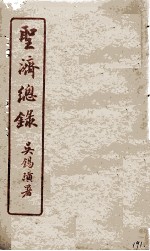 聖濟總錄
吳錫璜署
191.